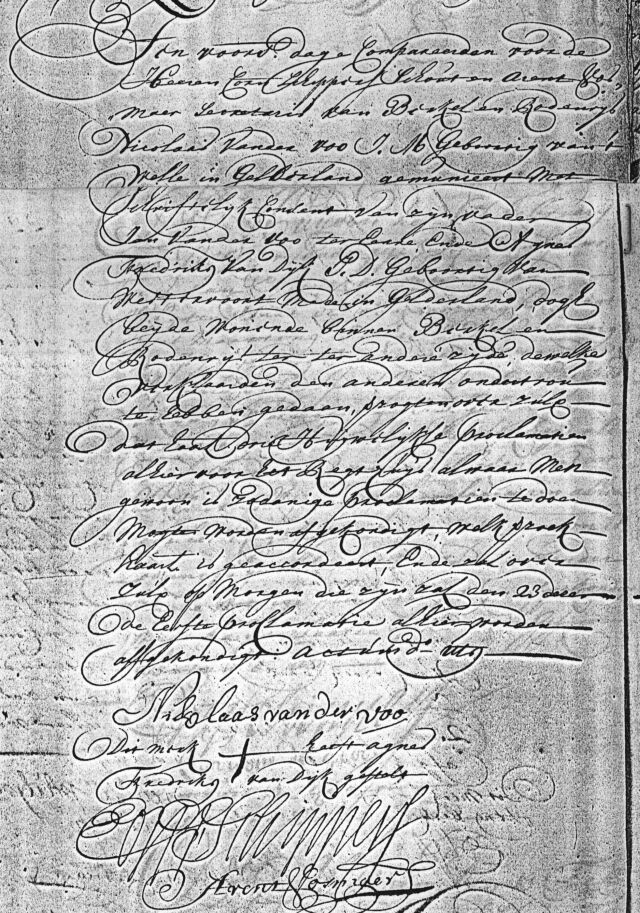 Ten voors. dage Compareerden voor de
Heeren Schippers Schout en Arent
Secretaris van Berkel en Rodenrijs
Nicolaas Vander voo J. M. Geboortig van t
Welle in Gelderland gemuneert Met
Schriftelijk Consent van zijn vader
Jan Vander Voo ter Eenre Ende Agnes
Fredriks Van Dijk J. D. Geboortig van
Mede in Gelderland, dogh
beyde wonende binnen Berkel en
Rodenrijs ter andere zijde, dewelke
verklaarden den anderen ondertrou
te hebben gedaan, versoekende
dat haar drie Huwelijkse proclamatien
alhier voor het Regthuys alwaar Men
gewoon is zodanige proclamatien te doen
Mogte worden afgekondigt, welk
is geaccordeert, Ende zal over
zulx op Morgen die zijn zal den 23 deser
de Eerste proclamatie alhier worden
affgekondigt. Actum Ut
Nicolaas van der voo
Dit merk + heeft agnes
Fredriks van Dijk gestelt
Schippers
Arent Cosmaer